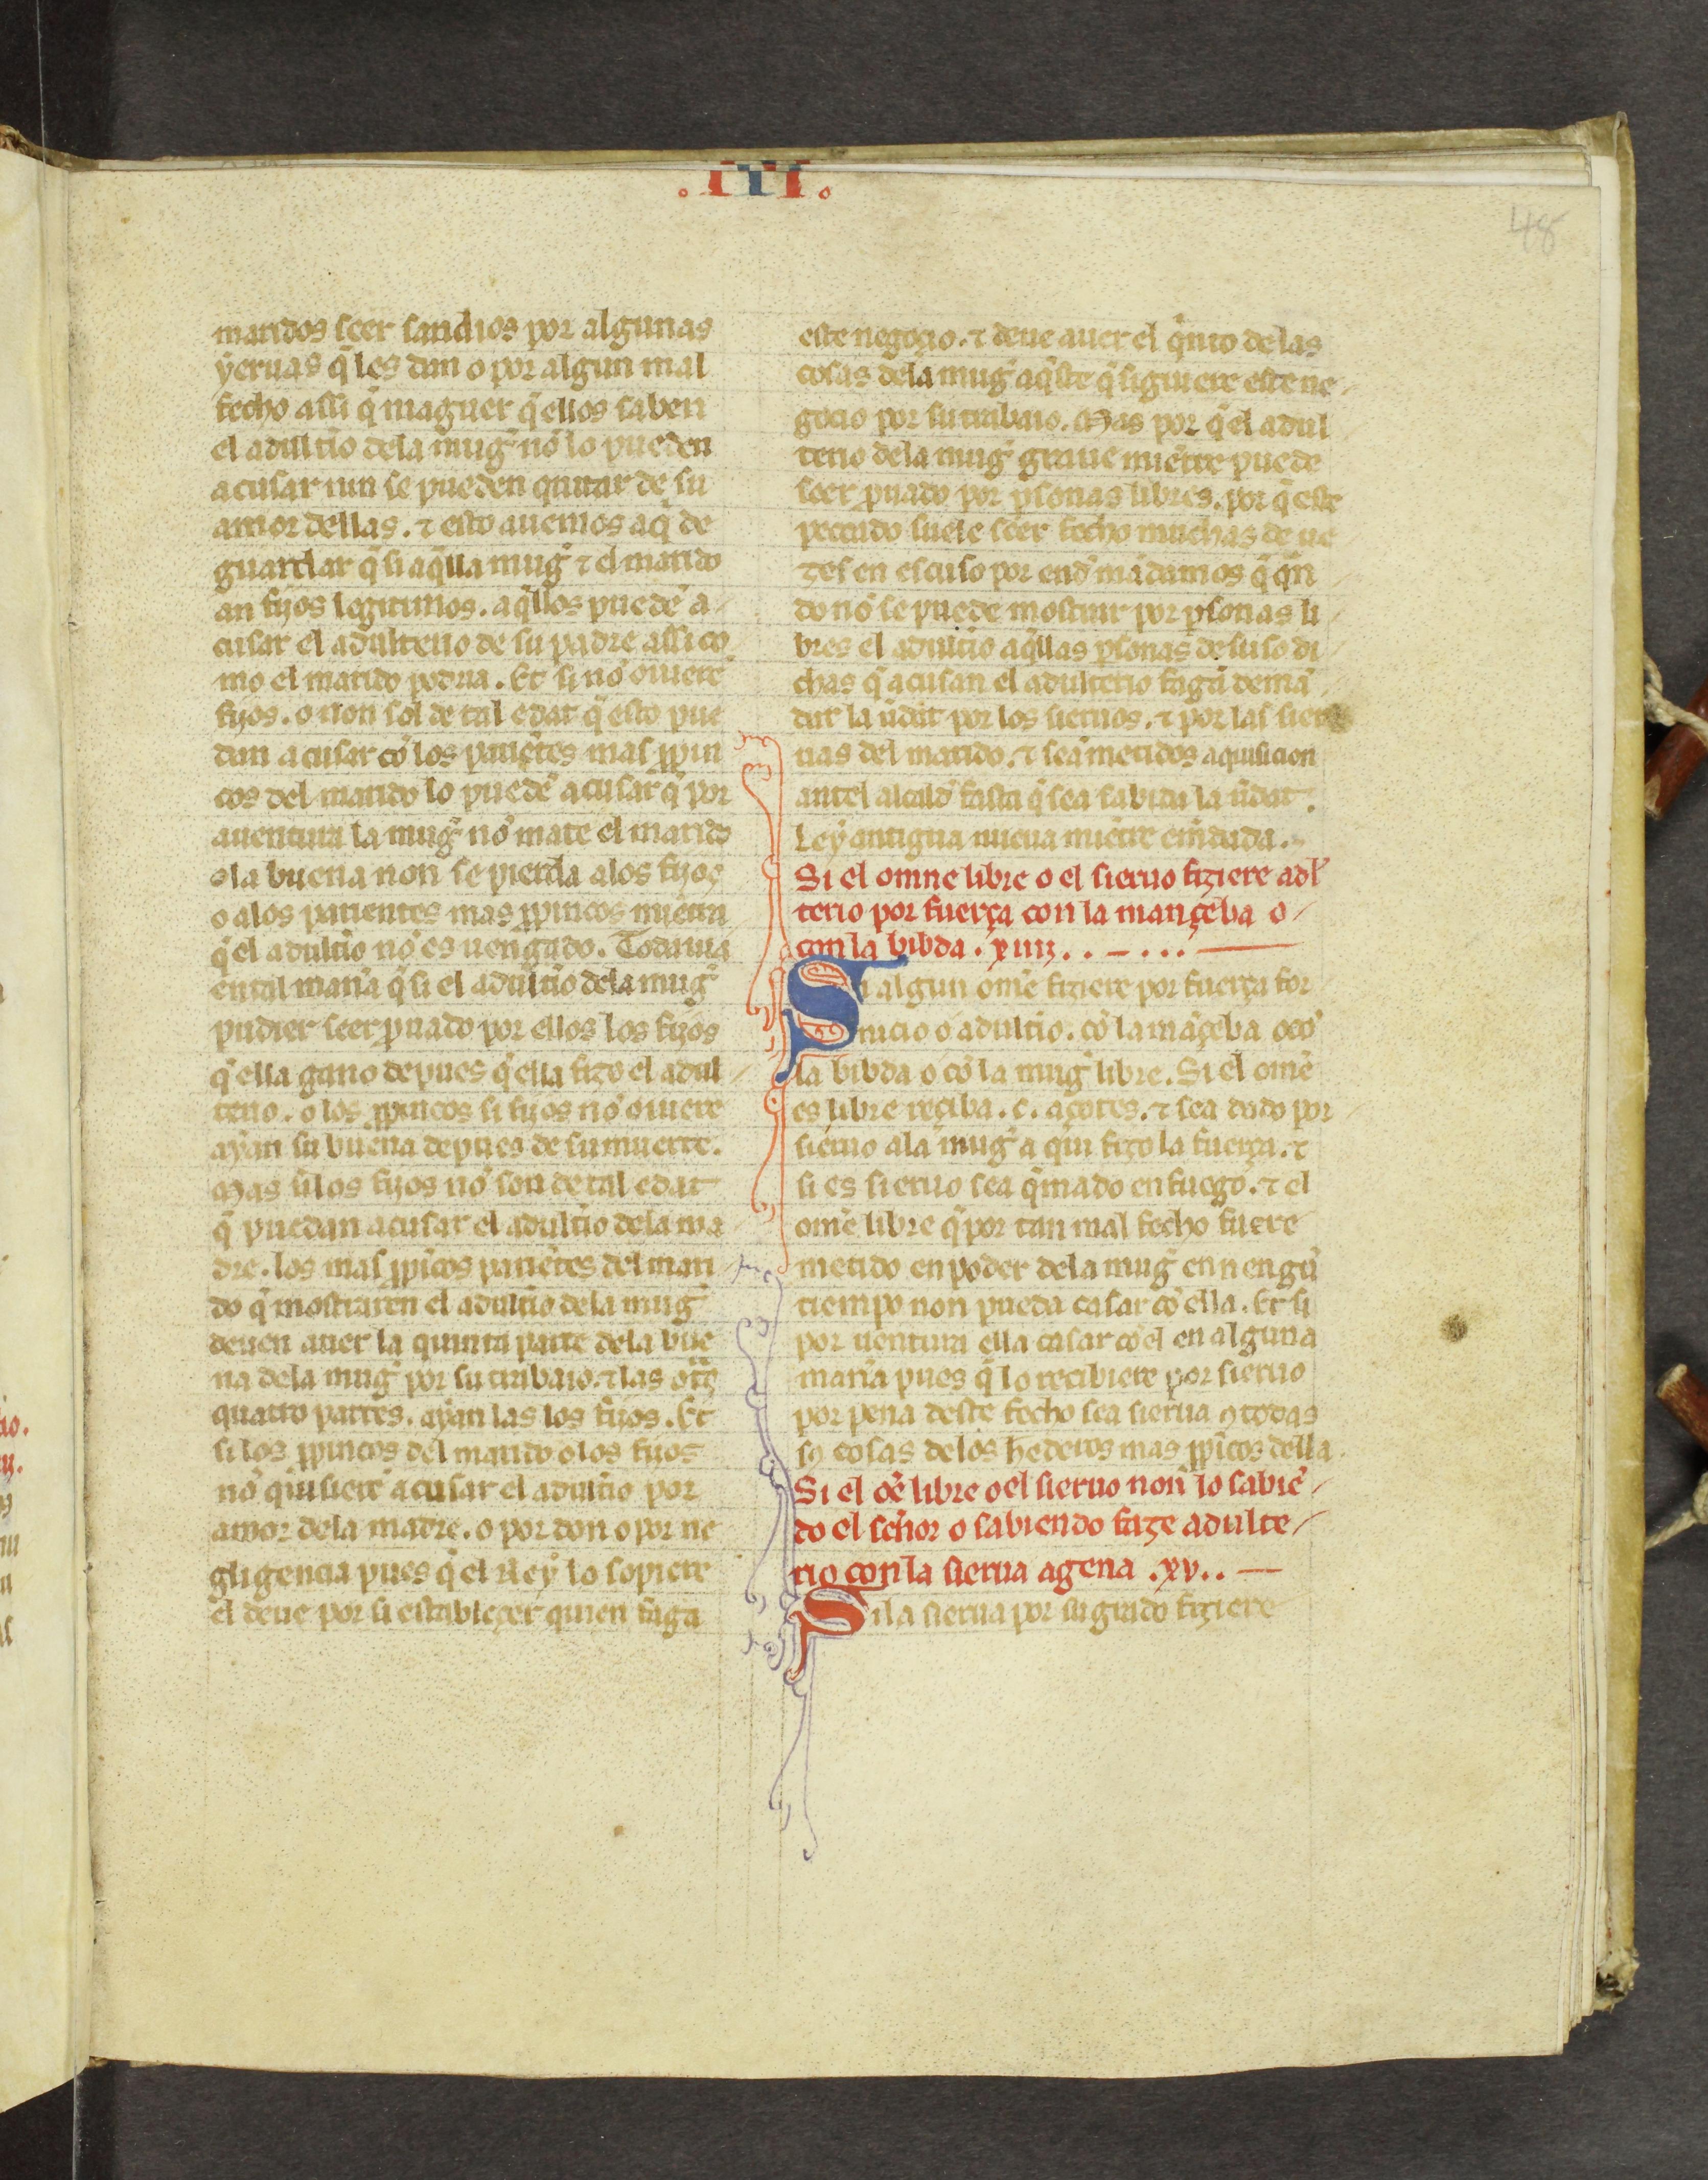 .III.
48
maridos seer sandios por algunas
yeruas q̃ les dan o por algun mal
fecho assi q̃ maguer q̃ ellos saben
el adult̾io dela mug̾ nõ lo pueden
acusar nin se pueden quitar de su
amor dellas. ⁊ esto auemos aq̃ de
guardar q̃ si aq̃lla mug̾ ⁊ el marido
an fijos legitimos. aq̃llos puedẽ a
cusar el adulterio de su padre assi co
mo el marido podria. Et si nõ ouierẽ
fijos. o non sol de tal edat q̃ esto pue
dan acusar cõ los pariẽtes mas ꝓpin
cos del marido lo puedẽ acusar q̃ por
auentura la mug̾ nõ mate el marido
o la buena non se pierda alos fijos
o alos parientes mas ꝓpincos miẽtra
q̃ el adult̾io nõ es uengado. Todauia
ental mañã q̃ si el adult̾io dela mug̾
pudier seer ꝓuado por ellos los fijos
q̃ ella gano depues q̃ ella fizo el adul
terio. o los ꝓpincos si fijos nõ ouierẽ
ayan su buena depues de su muerte.
Mas si los fijos nõ son de tal edat
q̃ puedan acusar el adult̾io dela ma
dre. los mas ꝓpĩcos pariẽtes del mari
do q̃ mostraren el adult̾io dela mug̾
deuen auer la quinta parte dela bue
na dela mug̾ por su trabaio. ⁊ las otᵃs
quatro partes. ayan las los fijos. Et
si los ꝓpincos del marido o los fijos
nõ q̃isierẽ acusar el adult̾io por
amor dela madre. o por don o por ne
gligencia pues q̃ el Rey lo sopiere
el deue por si estableçer quien faga
este negoçio. ⁊ deue auer el q̃nto de las
cosas dela mug̾ aq̃ste q̃ siguiere este ne
gocio por su trabaio. Mas por q̃ el adul
terio dela mug̾ graue miẽtre puede
seer ꝓuado por ꝑsonas libres. por q̃ este
peccado suele seer fecho muchas de ue
zes en escuso por end̾ mãdamos q̃ q̃n
do nõ se puede mostrar por ꝑsonas li
bres el adult̾io aq̃llas ꝑsonas de suso di
chas q̃ acusan el adulterio fagã demã
dar la ũdat por los sieruos. ⁊ por las sier
uas del marido. ⁊ seã metidos aquisicion
antel alcald̾ fasta q̃ sea sabida la ũdat.
Ley antigua nueua miẽtre emẽdada.
Si el omne libre o el sieruo fiziere adl̾
terio por fuerça con la mançeba o
con la bibda. xiiij.
Si algun omẽ fiziere por fuerça for
nicio o adult̾io. cõ la mãçeba o cõ
la bibda o cõ la mug̾ libre. Si el omẽ
es libre reçiba. c. açotes. ⁊ sea dado por
sieruo ala mug̾ a qui fizo la fuerça. ⁊
si es sieruo sea q̃mado en fuego. ⁊ el
omẽ libre q̃ por tan mal fecho fuere
metido en poder dela mug̾ en nengũ
tiempo non pueda casar cõ ella. Et si
por uentura ella casar cõ el en alguna
mañã pues q̃ lo recibiere por sieruo
por pena deste fecho sea sierua ꝯ todas
sꝯ cosas delos hederos mas ꝓpĩcos della.
Si el oẽ libre o el sieruo non lo sabiẽ
do el señor o sabiendo faze adulte
rio con la sierua agena .xv.
Si la sierua por su grado fiziere